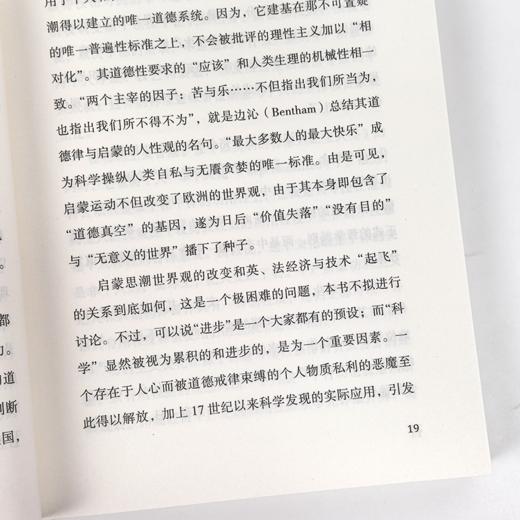 潮得以建立的唯一道德系统。因为，它建基在那不可置疑
的唯一普遍性标准之上，不会被批评的理性主义加以“相
对化”。其道德性要求的“应该”和人类生理的机械性相一
致。“两个主宰的因子：苦与乐……不但指出我们所当为，
也指出我们所不得不为”，就是边沁（Bentham）总结其道
德律与启蒙的人性观的名句。“最大多数人的最大快乐”成
为科学操纵人类自私与无餍贪婪的唯一标准。由是可见，
启蒙运动不但改变了欧洲的世界观，由于其本身即包含了
“道德真空”的基因，遂为日后“价值失落”“没有目的”
与“无意义的世界”播下了种子。
启蒙思潮世界观的改变和英、法经济与技术“起飞”
的关系到底如何，这是一个极困难的问题，本书不拟进行
讨论。不过，可以说“进步”是一个大家都有的预设；而“科
学”显然被视为累积的和进步的，是为一个重要因素。一
个存在于人心而被道德戒律束缚的个人物质私利的恶魔至
此得以解放，加上 17 世纪以来科学发现的实际应用，引发
19
都
力。
的道
判断
国，